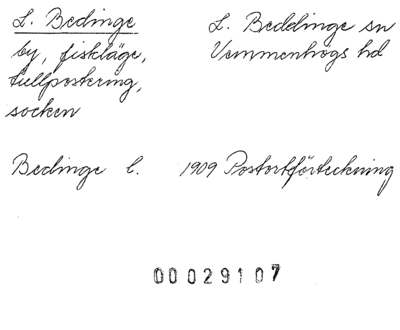 L. Bedinge
L. Beddinge sn
by, fiskläge,
Vemmenhögs hd
tullpostering,
socken
Bedinge l. 1909 Postortförteckning
00029107